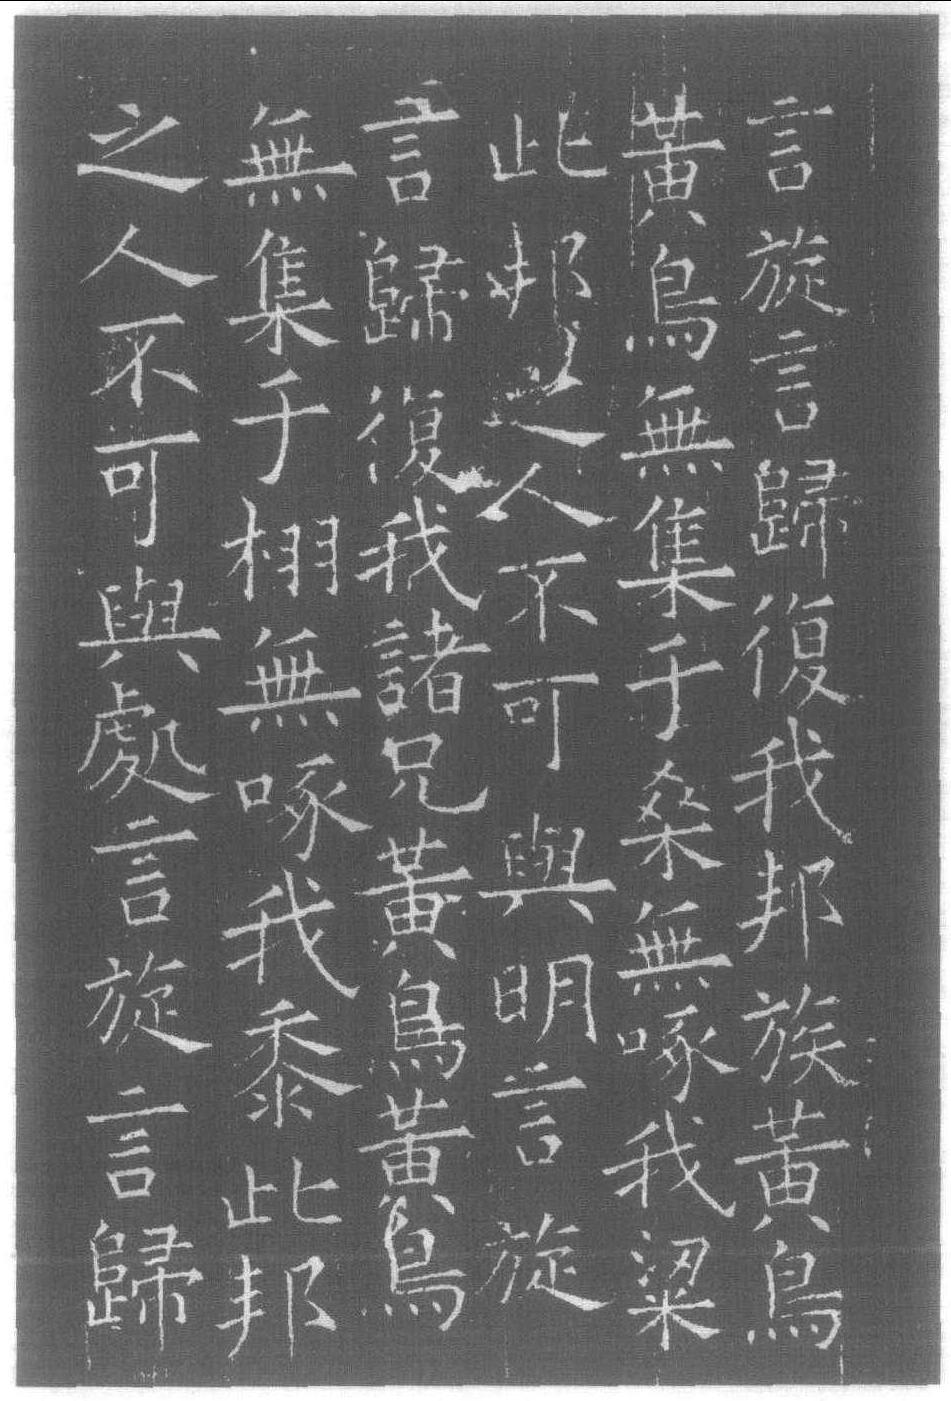 言旋言歸復我邦族黃鳥
黃鳥無集于桑無啄我粱
此邦之人不可與明言旋
言歸復我諸兄黃鳥黃鳥
無集于栩無啄我黍此邦
之人不可與處言旋言歸